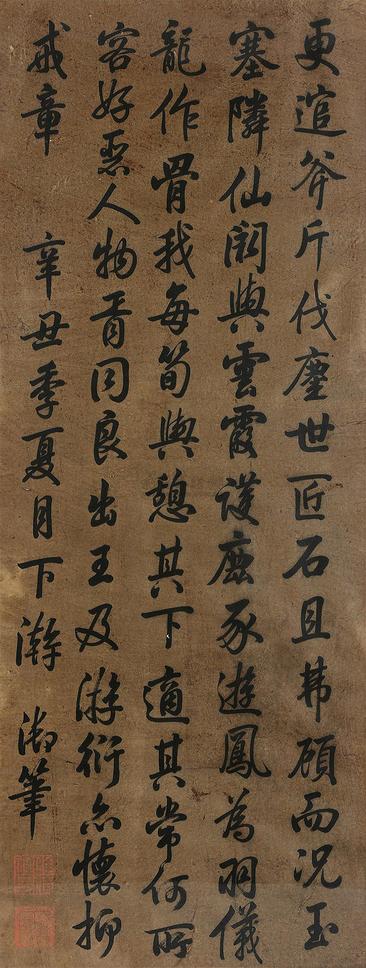 更逭斧斤伐塵世匠石且弗顧而況玉
塞隣仙闕與雲霞護鹿豕遊鳳為羽儀
龍作骨我每筍與憩其下適其常何所
客好惡人物胥同良出王及游衍亦懷抑
戒章 辛丑季夏月下澣 御筆